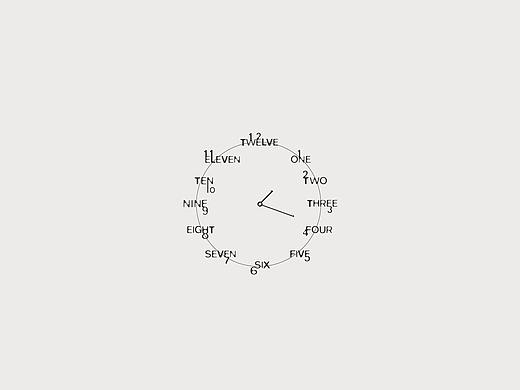 12
TWELVE
1
ONE
2
TWO
THREE
3
4
FOUR
FIVE
5
SIX
6
SEVEN
7
EIGHT
8
NINE
9
TEN
10
11
ELEVEN